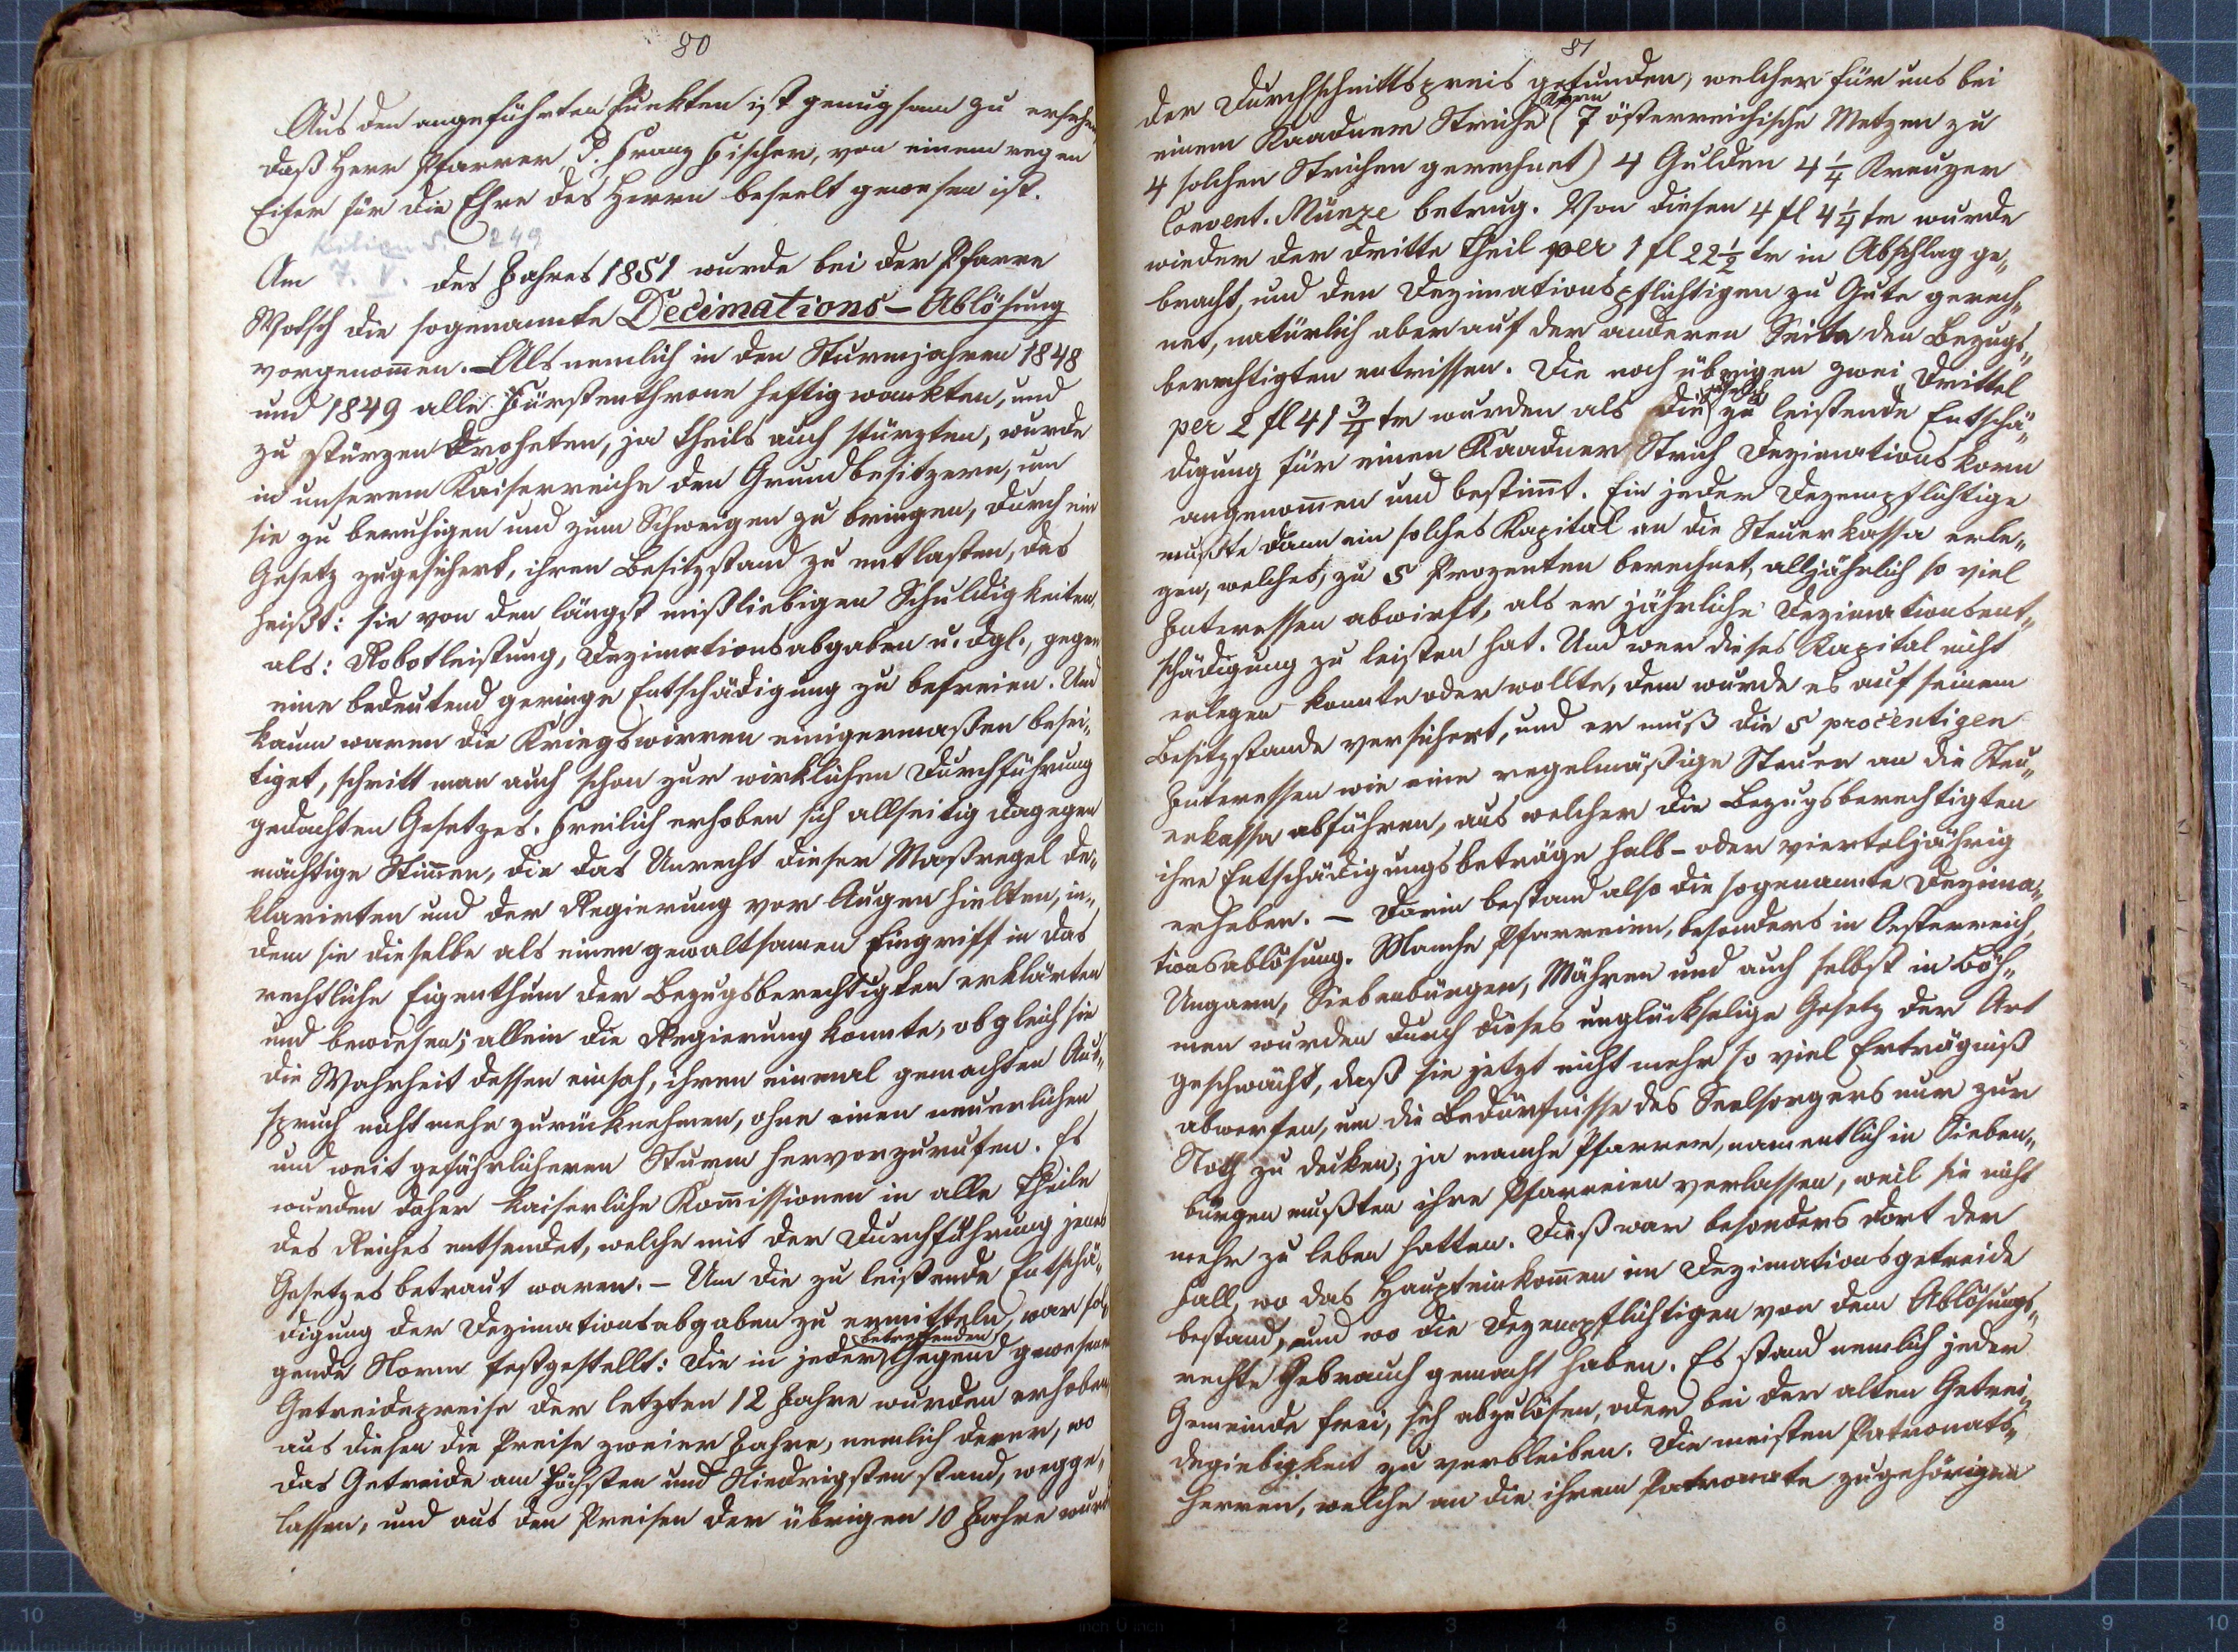 80
Aus den angeführten Punkten ist genugsam zu ersehen,
daß Herr Pfarrer, P. Franz Fischer, von einem regen
Eifer für die Ehre des Herrn beseelt gewesen ist.
Kilian S. 249
Am 7. V. des Jahres 1851 wurde bei der Pfarre
Wotsch die sogenannte Decimations-Ablösung
vorgenom̄en. – Als nemlich in den Sturmjahren 1848
und 1849 alle Fürstenthrone heftig wankten, und
zu stürzen droheten, ja theils auch stürzten, wurde
in unserem Kaiserreiche den Grundbesitzern, um
sie zu beruhigen und zum Schweigen zu bringen, durch ein
Gesetz zugesichert, ihren Besitzstand zu entlasten, das
heißt: sie von den längst mißliebigen Schuldigkeiten,
als: Robotleistung, Dezimationsabgaben u. dgl., gegen
eine bedeutend geringe Entschädigung zu befreien. Und
kaum waren die Kriegswirren einigermaßen besei-
tiget, schritt man auch schon zur wirklichen Durchführung
gedachten Gesetzes. Freilich erhoben sich allseitig dagegen
mächtige Stim̄en, die das Unrecht dieser Maßregel de-
klarirten und der Regierung vor Augen hielten, in-
dem sie dieselbe als einen gewaltsamen Eingriff in das
rechtliche Eigenthum der Bezugsberechtigten erklärten
und bewiesen; allein die Regierung konnte, obgleich sie
die Wahrheit dessen einsah, ihren einmal gemachten Aus-
spruch nicht mehr zurücknehmen, ohne einen neuerlichen
und weit gefährlicheren Sturm hervorzurufen. Es
wurden daher kaiserliche Kom̄issionen in alle Theile
des Reiches entsendet, welche mit der Durchführung jenes
Gesetzes betraut waren. – Um die zu leistende Entschä-
digung der Dezimationsabgaben zu ermitteln, war fol-
gende Norm festgestellt: Die in jeder betreffenden Gegend gewesenen
Getreidepreise der letzten 12 Jahre wurden erhoben,
aus diesen die Preise zweier Jahre, nemlich derer, wo
das Getreide am Höchsten und Niedrigsten stand, wegge-
lassen, und aus den Preisen der übrigen 10 Jahre wurde
81
der Durchschnittspreis gefunden, welcher für uns bei
einem Kaadner Striche Korn (7 österreichische Metzen zu
4 solchen Strichen gerechnet) 4 Gulden 4 1/4 Kreuzer
Convent. Münze betrug. Von diesen 4 fl 4 1/4 kr wurde
wieder der dritte Theil per 1 fl 22 1/2 kr in Abschlag ge-
bracht, und den Dezimationspflichtigen zu Gute gerech-
net, natürlich aber auf der anderen Seite den Bezugs-
berechtigten entrissen. Die noch übrigen zwei Drittel
per 2 fl 41 3/4 kr wurden als die zu leistende Entschä-
digung für einen Kaadner Strich Dezimationskorn
angenom̄en und bestim̄t. Ein jeder Dezempflichtige
mußte dann ein solches Kapital an die Steuerkassa erle-
gen, welches, zu 5 Prozenten berechnet, alljährlich so viel
Interessen abwirft, als er jährliche Dezimationsent-
schädigung zu leisten hat. Und wer dieses Kapital nicht
erlegen konnte oder wollte, dem wurde es auf seinem
Besitzstande versichert, und er muß die 5 procentigen
Interessen wie eine regelmäßige Steuer an die Steu-
erkassa abführen, aus welcher die Bezugsberechtigten
ihre Entschädigungsbeträge halb- oder vierteljährig
erheben. – Darin bestand also die sogenannte Dezima-
tionsablösung. Manche Pfarreien, besonders in Oesterreich,
Ungarn, Siebenbürgen, Mähren und auch selbst in Böh-
men wurden durch dieses unglückselige Gesetz der Art
geschwächt, daß sie jetzt nicht mehr so viel Erträgniß
abwerfen, um die Bedürfnisse des Seelsorgers nur zur
Noth zu decken; ja manche Pfarrer, namentlich in Sieben-
bürgen mußten ihre Pfarreien verlassen, weil sie nicht
mehr zu leben hatten. Dieß war besonders dort der
Fall, wo das Haupteinkom̄en im Dezimationsgetreide
bestand, und wo die Dezempflichtigen von dem Ablösungs-
rechte Gebrauch gemacht haben. Es stand nemlich jeder
Gemeinde frei, sich abzulösen, oder bei der alten Getrei-
degiebigkeit zu verbleiben. Die meisten Patronats-
herren, welche an die ihrem Patronate zugehörigen